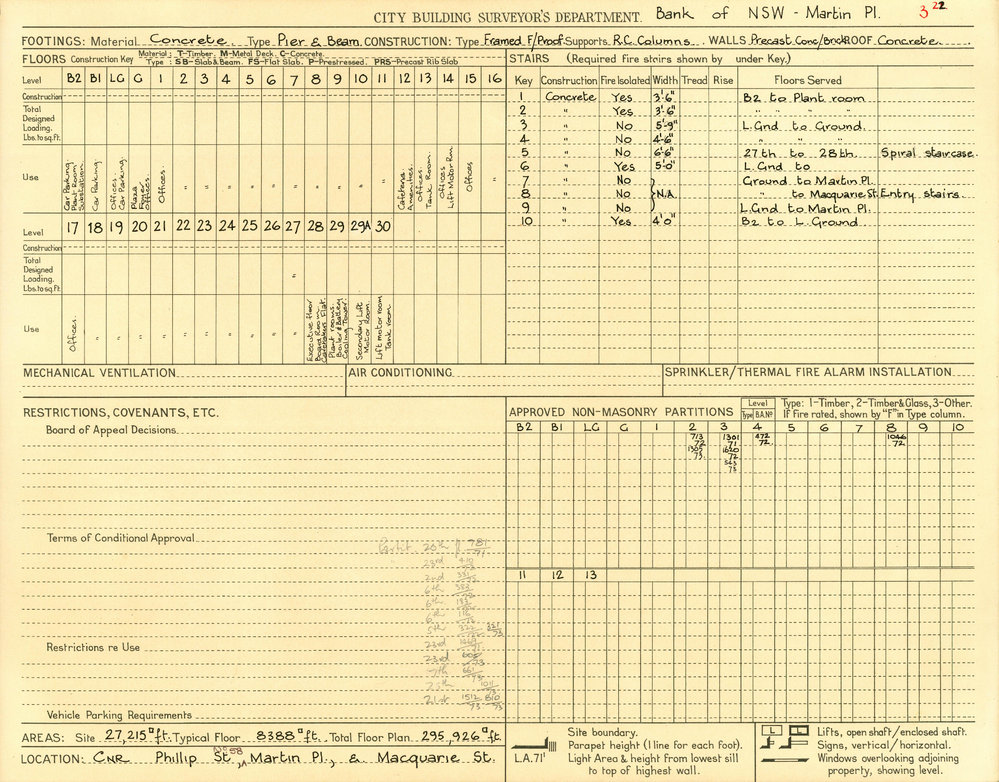 CITY BUILDING SURVEYOR'S DEPARTMENT. Bank of NSW - Martin Pl. 3 22
FOOTINGS: Material Concrete Type Pier & Beam. CONSTRUCTION: Type Framed F/Proof Supports R.C. Columns WALLS Precast Conc/Brick ROOF Concrete
FLOORS Construction Key Material: T-Timber. M-Metal Deck. C-Concrete.
Type: SB-Slab & Beam. FS-Flat Slab. P-Prestressed. PRS-Precast Rib Slab
Level B2 B1 LG G 1 2 3 4 5 6 7 8 9 10 11 12 13 14 15 16
Construction
Total Designed Loading. Lbs. to sq. ft.
Use Car Parking Plant Room Substation. Car Parking Offices. Car Parking Plaza Foyer Offices Offices. " " " " " " " " " " Cafeteria. Amenities. Offices Tank Room. Offices Lift Motor Rm. Offices "
Level 17 18 19 20 21 22 23 24 25 26 27 28 29 29A 30
Construction
Total Designed Loading. Lbs. to sq. ft. "
Use Offices. " " " " " " " " " Executive floor Board Room. Caretakers Flat. Plant rooms. Boiler & Battery Cooling Tower. Secondary Lift Motor Room. Lift motor room Tank room.
STAIRS (Required fire stairs shown by under Key.)
Key Construction Fire Isolated Width Tread Rise Floors Served
1 Concrete Yes 3'-6" B2 to Plant room
2 " Yes 3'-6" " " " "
3 " No 5'-9" L.Gnd to Ground.
4 " No 4'-6" " " "
5 " No 6'-6" 27th to 28th. Spiral staircase.
6 " Yes 5'0" L.Gnd to
7 " No Ground to Martin Pl.
8 " No N.A. " to Macquarie St. Entry stairs.
9 " No L.Gnd to Martin Pl.
10 " Yes 4'0" B2 to L. Ground
MECHANICAL VENTILATION AIR CONDITIONING SPRINKLER/THERMAL FIRE ALARM INSTALLATION
RESTRICTIONS, COVENANTS, ETC.
Board of Appeal Decisions.
Terms of Conditional Approval
20th fl. 781/71
23rd
2nd
6th
6th
6th
5th
23rd
23rd
7th
21st
Restrictions re Use
Vehicle Parking Requirements
APPROVED NON-MASONRY PARTITIONS Level Type B.A.Nº Type: 1-Timber, 2-Timber & Glass, 3-Other. If fire rated, shown by "F" in Type column.
B2 B1 LG G 1 2 3 4 5 6 7 8 9 10
713 1301 472 1046
72 71 72. 72.
1305 1620
73. 72
563
73
11 12 13
AREAS: Site 27,215 □ft. Typical Floor 8388 □ft. Total Floor Plan 295,926 □ft.
LOCATION: Cnr Phillip St, Nº 58 Martin Pl., & Macquarie St.
Site boundary.
Parapet height (1 line for each foot).
L.A.71' Light Area & height from lowest sill to top of highest wall.
Lifts, open shaft/enclosed shaft.
Signs, vertical/horizontal.
Windows overlooking adjoining property, showing level.